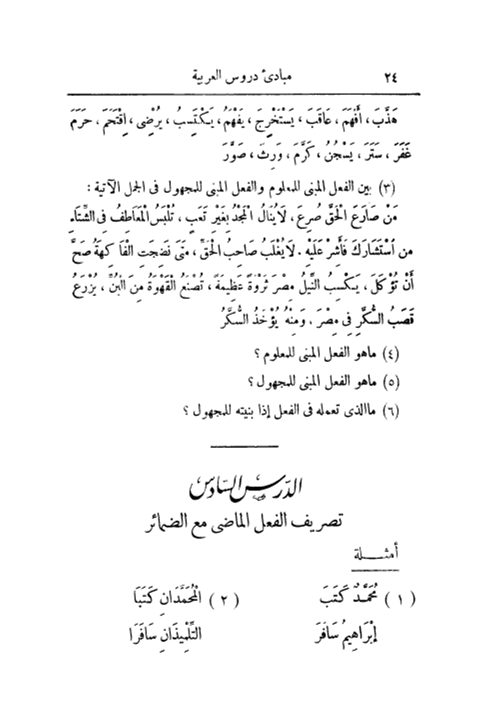 ٢٤ مبادئ دروس العربية
هَذَّبَ ، أَفْهَمَ ، عَاقَبَ ، يَسْتَخْرِجَ ، يَفْهَمُ ، يَكْتَسِبُ ، يُرْضِى ، اِقْتَحَمَ ، حَرَمَ
غَفَرَ ، سَتَرَ ، يَسْجُنُ ، كَرَّمَ ، وَرِثَ ، صَوَّرَ
(٣) بين الفعل المبنى للمعلوم والفعل المبنى للمجهول فى الجمل الآتية :
مَنْ صَارَعَ الْحَقَّ صُرِعَ ، لَا يُنَالُ الْمَجْدُ بِغَيْرِ تَعَبٍ ، تُلْبَسُ الْمَعَاطِفُ فِى الشِّتَاءِ
مَنِ اسْتَشَارَكَ فَأَشِرْ عَلَيْهِ . لَا يُغْلَبُ صَاحِبُ الْحَقِّ ، مَتَى نَضِجَتِ الْفَاكِهَةُ صَحَّ
أَنْ تُؤْكَلَ ، يَكْسِبُ النِّيلُ مِصْرَ ثَرْوَةً عَظِيمَةً ، تُصْنَعُ الْقَهْوَةُ مِنَ الْبُنِّ ، يُزْرَعُ
قَصَبُ السُّكَّرِ فِى مِصْرَ ، وَمِنْهُ يُؤْخَذُ السُّكَّرُ
(٤) ماهو الفعل المبنى للمعلوم ؟
(٥) ماهو الفعل المبنى للمجهول ؟
(٦) ماالذى تعمله فى الفعل إذا بنيته للمجهول ؟
الدرس السادس
تصريف الفعل الماضى مع الضمائر
أمثلة
(١) مُحَمَّدٌ كَتَبَ (٢) الْمُحَمَّدَانِ كَتَبَا
إِبْرَاهِيمُ سَافَرَ التِّلْمِيذَانِ سَافَرَا